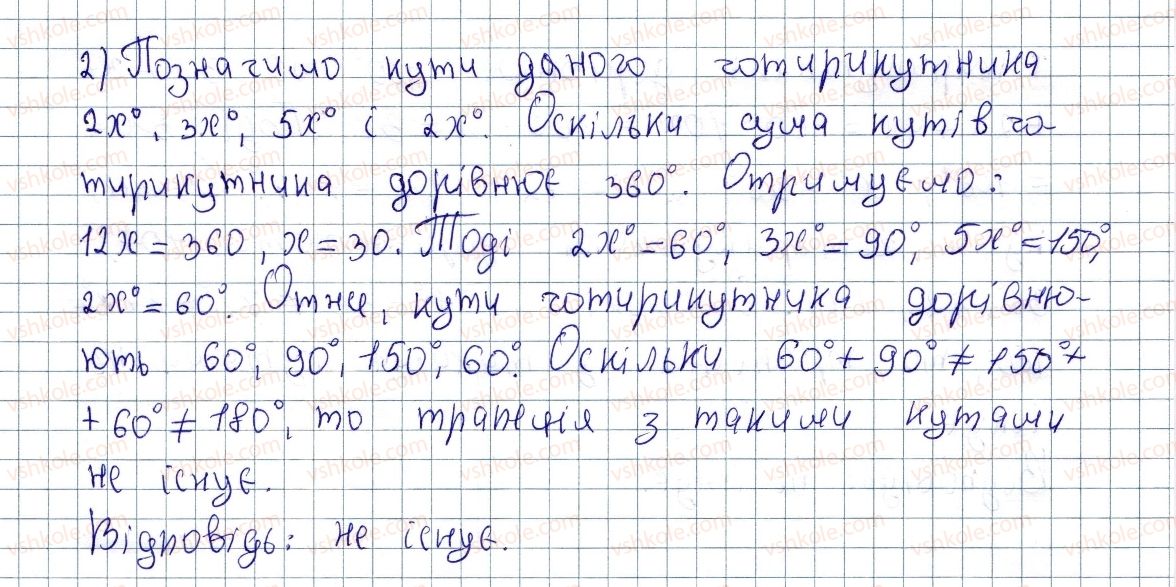 2) Позначимо кути даного чотирикутника
2x°, 3x°, 5x° і 2x°. Оскільки сума кутів чо-
тирикутника дорівнює 360°. Отримуємо:
12x = 360, x = 30. Тоді 2x° = 60°, 3x° = 90°, 5x° = 150°,
2x° = 60°. Отже, кути чотирикутника дорівню-
ють 60°, 90°, 150°, 60°. Оскільки 60° + 90° ≠ 150° +
+ 60° ≠ 180°, то трапеція з такими кутами
не існує.
Відповідь: не існує.